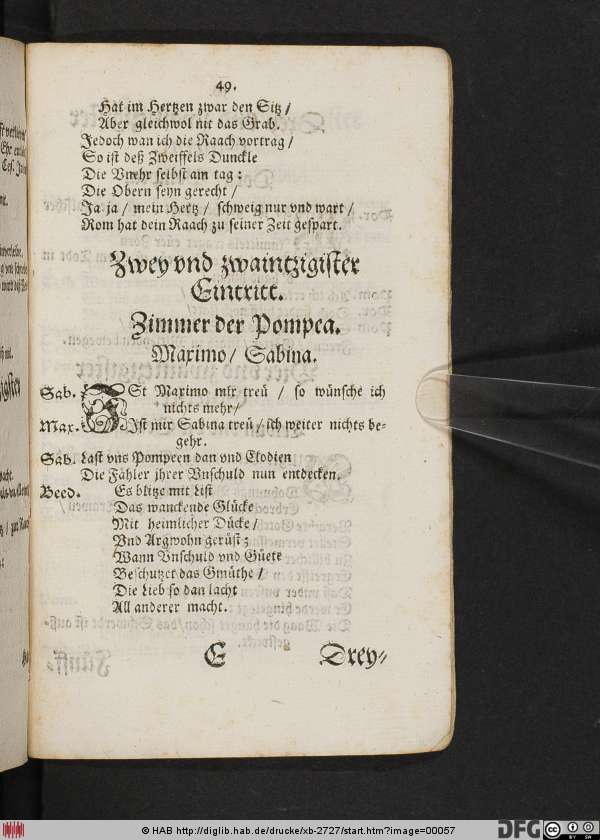 49.
Hat im Hertzen zwar den Sitz /
Aber gleichwol nit das Grab.
Jedoch wan ich die Raach vortrag /
So ist deß Zweiffels Dunckle
Die Vnehr selbst am tag :
Die Obern seyn gerecht /
Ja ja / mein Hertz / schweig nur vnd wart /
Rom hat dein Raach zu seiner Zeit gespart.
Zwey vnd zwaintzigister
Eintritt.
Zimmer der Pompea.
Maximo / Sabina.
Sab. ISt Maximo mir treü / so wünsche ich
nichts mehr /
Max. Ist mir Sabina treü / ich weiter nichts be-
gehr.
Sab. Last vns Pompeen dan vnd Clodien
Die Fähler jhrer Vnschuld nun entdecken.
Beed. Es blitze mit List
Das wanckende Glücke
Mit heimlicher Dücke /
Vnd Argwohn gerüst ;
Wann Vnschuld vnd Güete
Beschutzet das Gmüthe /
Die Lieb so dan lacht
All anderer macht.
E Drey-
© HAB http://diglib.hab.de/drucke/xb-2727/start.htm?image=00057
DFG
BY SA